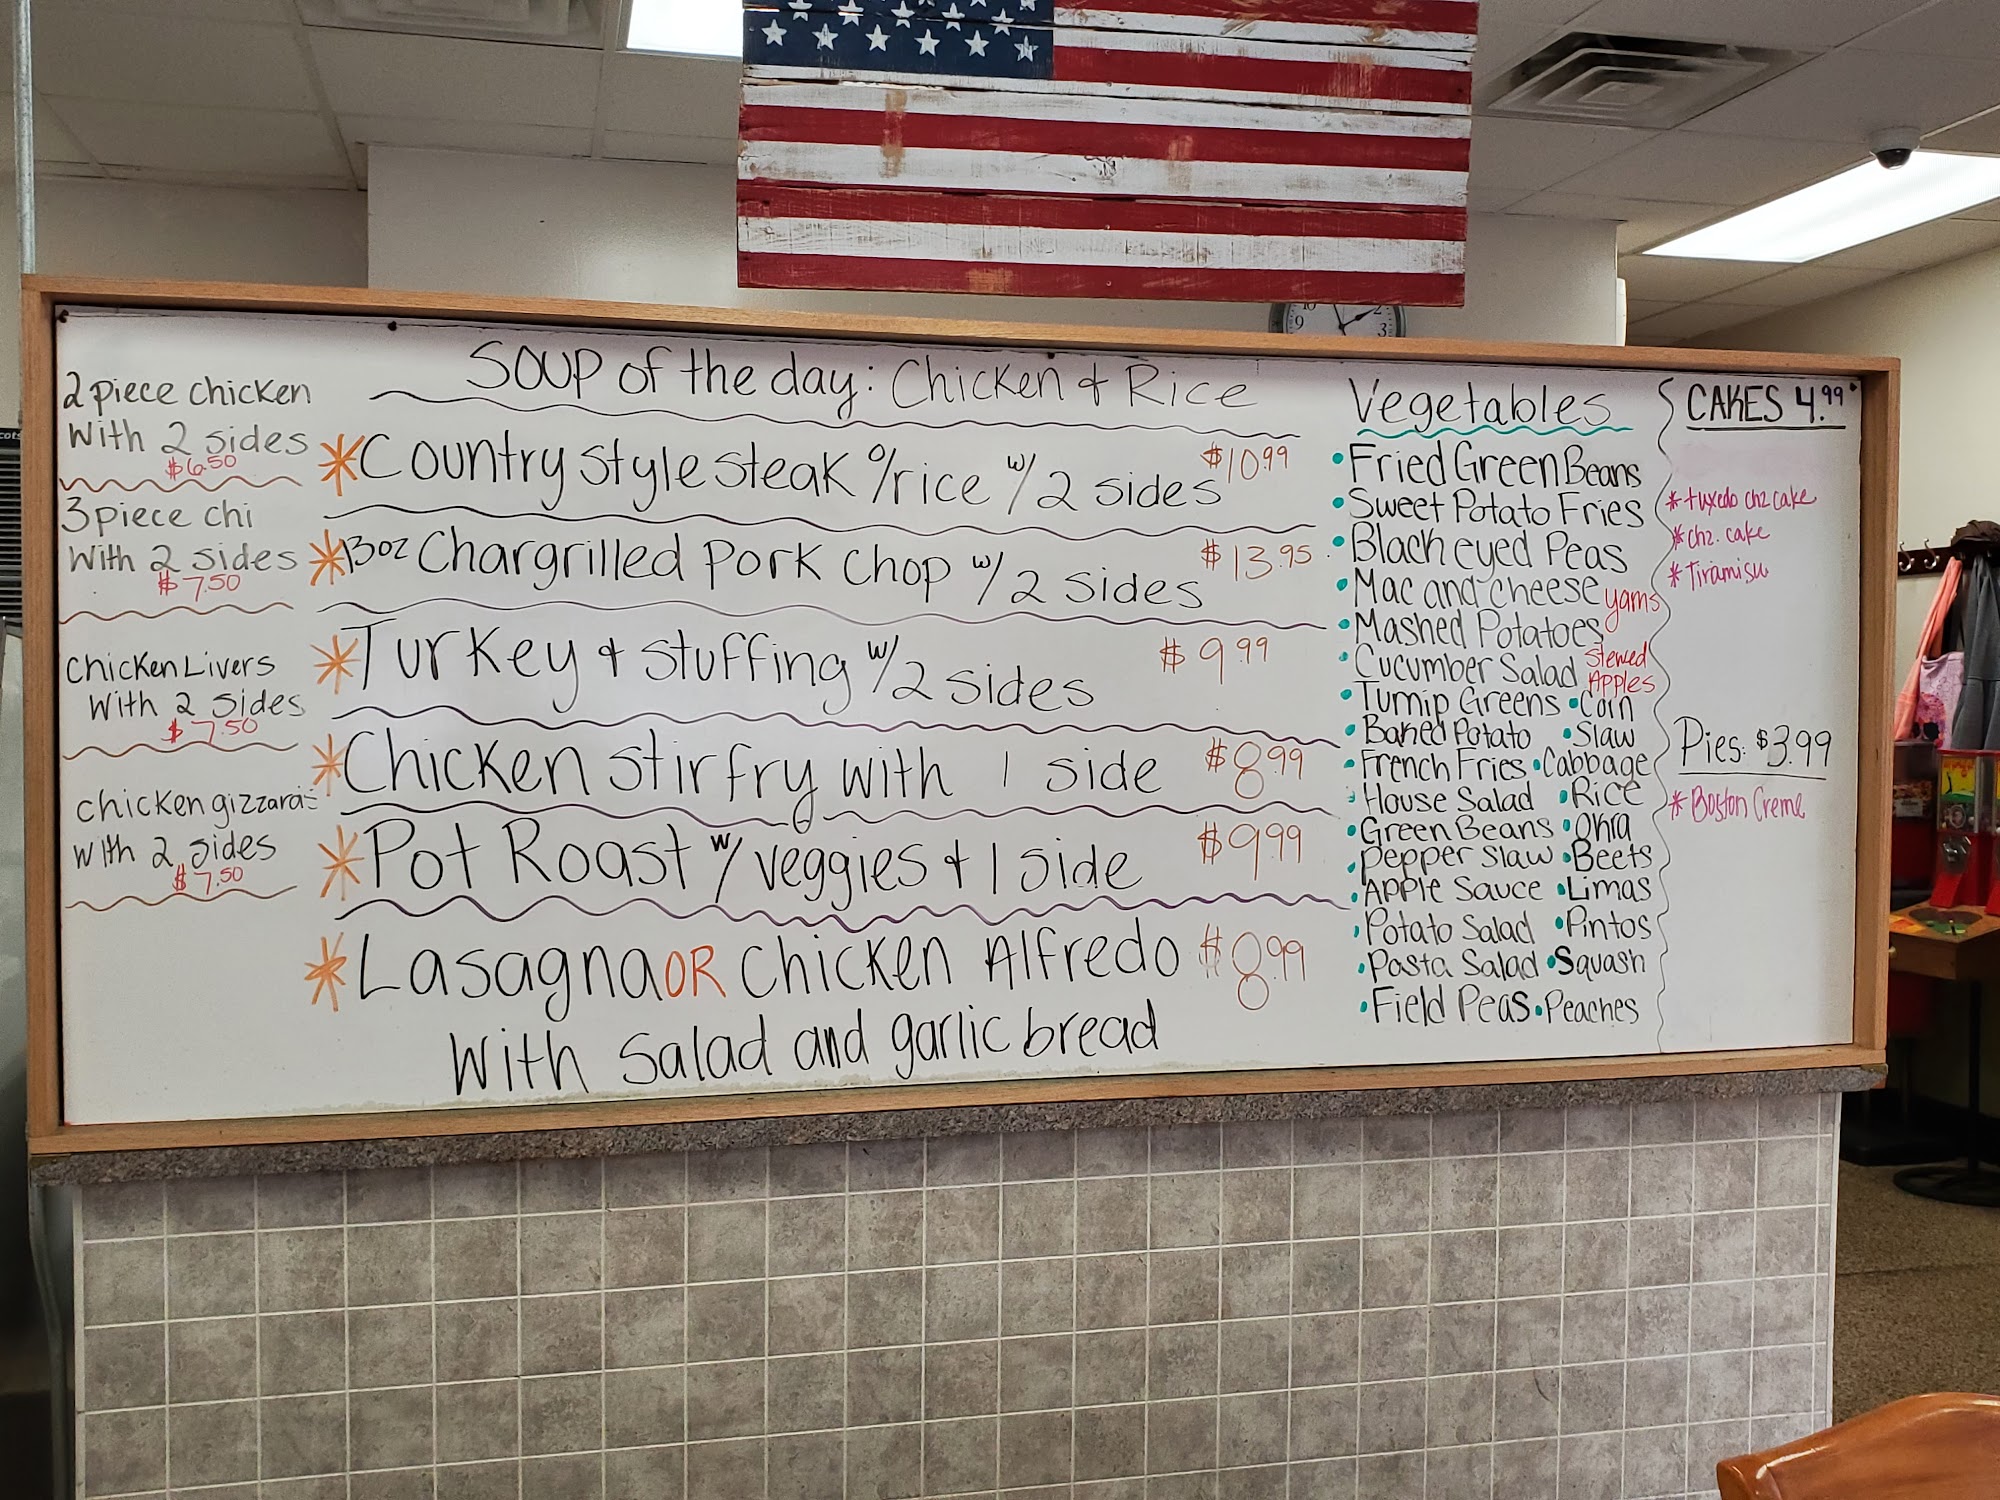 2 piece chicken
With 2 sides
$6.50
3 piece chi
With 2 sides
$7.50
chicken Livers
With 2 sides
$7.50
chicken gizzards
with 2 sides
$7.50
Soup of the day: Chicken & Rice
*Country style steak o/rice w/2 sides $10.99
*13oz Chargrilled Pork Chop w/2 sides $13.95
*Turkey & stuffing w/2 sides $9.99
*Chicken stirfry with 1 side $8.99
*Pot Roast w/veggies & 1 side $9.99
*Lasagna OR Chicken Alfredo $8.99
With salad and garlic bread
Vegetables
•Fried Green Beans
•Sweet Potato Fries
•Blackeyed Peas
•Mac and cheese yams
•Mashed Potatoes
•Cucumber Salad Stewed Apples
•Turnip Greens •Corn
•Baked Potato •Slaw
•French Fries •Cabbage
•House Salad •Rice
•Green Beans •Okra
•pepper slaw •Beets
•Apple Sauce •Limas
•Potato Salad •Pintos
•Pasta Salad •Squash
•Field Peas •Peaches
CAKES 4.99
*tuxedo chz cake
*chz. cake
*Tiramisu
Pies: $3.99
*Boston Creme
10 2
9 3